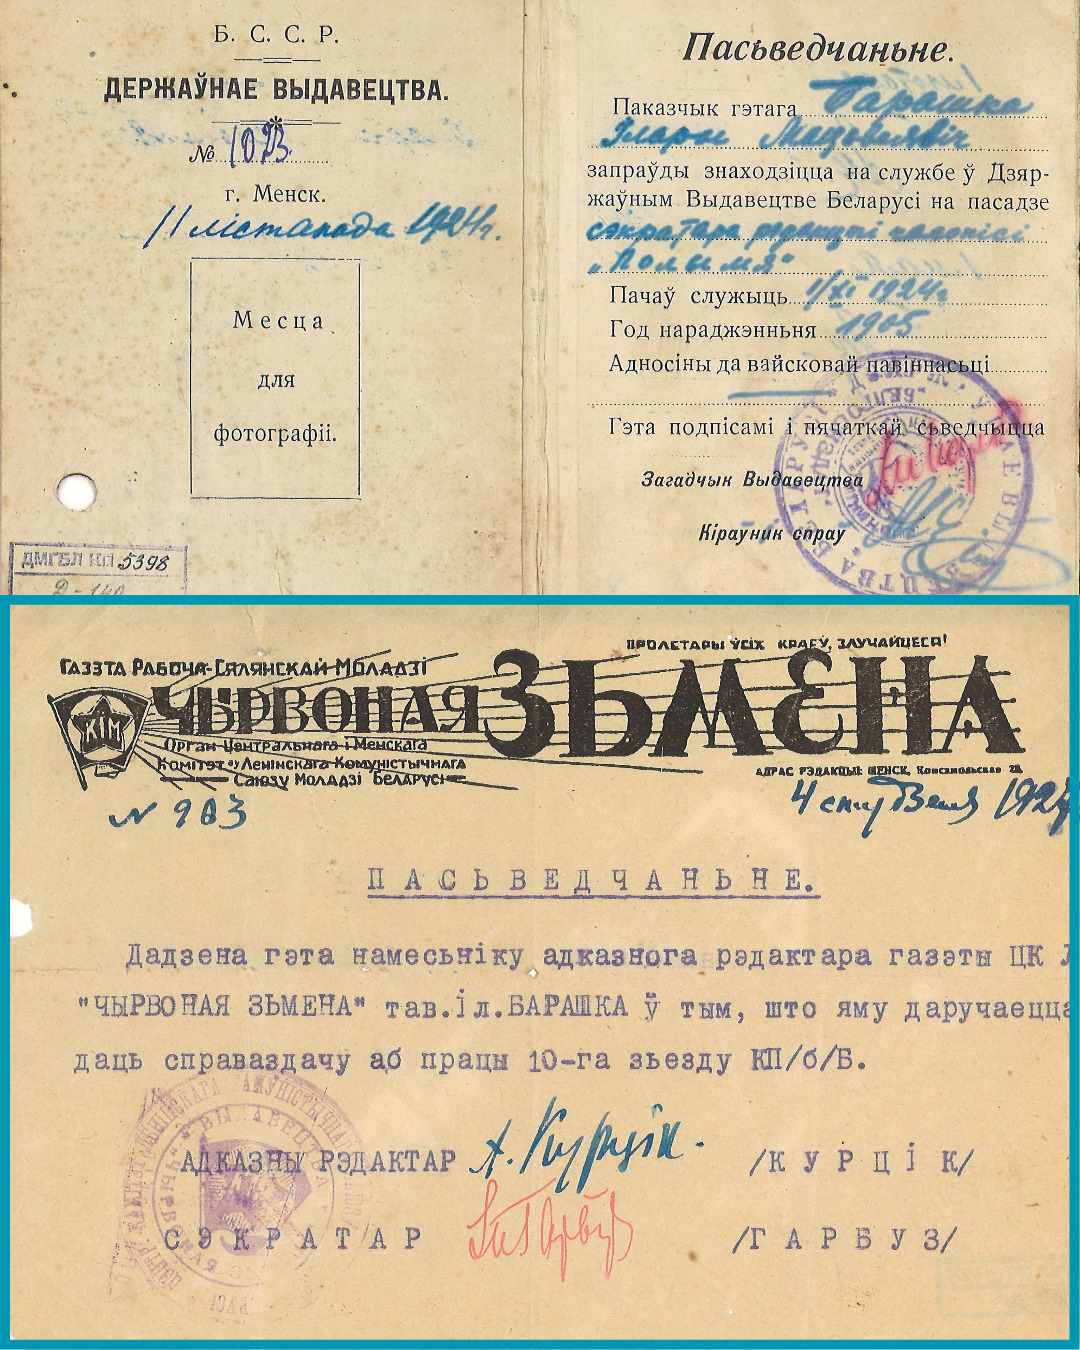 Б. С. С. Р.
ДЕРЖАЎНАЕ ВЫДАВЕЦТВА.
№ 1023
г. Менск.
11 лістапада 1924 г.
Месца
для
фотографіі.
ДМГБЛ КП 5398
Пасьведчаньне.
Паказчык гэтага Барашка
Ілары
запраўды знаходзіцца на службе ў Дзяр-
жаўным Выдавецтве Беларусі на пасадзе
сэкратара рэдакцыі часопісі
„Полымя“
Пачаў служыць 1/XI 1924 г
Год нараджэнньня 1905
Адносіны да вайсковай павіннасьці
Гэта подпісамі і пячаткай сьведчыцца
Загадчык Выдавецтва
Кіраўнік спраў
ПРОЛЕТАРЫ ЎСІХ КРАЁЎ, ЗЛУЧАЙЦЕСЯ!
ГАЗЭТА РАБОЧА-СЯЛЯНСКАЙ МОЛАДЗІ
КІМ
ЧЫРВОНАЯ ЗЬМЕНА
Орган Центральнага і Менскага
Комітэтаў Ленінскага Комуністычнага
Саюзу Моладзі Беларусі
АДРАС РЭДАКЦЫІ: МЕНСК, Комсамольская 28.
N 903
4 студзеня 1927
ПАСЬВЕДЧАНЬНЕ.
Дадзена гэта намесьніку адказнога рэдактара газэты ЦК Л
"ЧЫРВОНАЯ ЗЬМЕНА" тав.іл.БАРАШКА ў тым, што яму даручаецца
даць справаздачу аб працы 10-га зьезду КП/б/Б.
АДКАЗНЫ РЭДАКТАР А. Курцік. /КУРЦІК/
СЭКРАТАР /ГАРБУЗ/